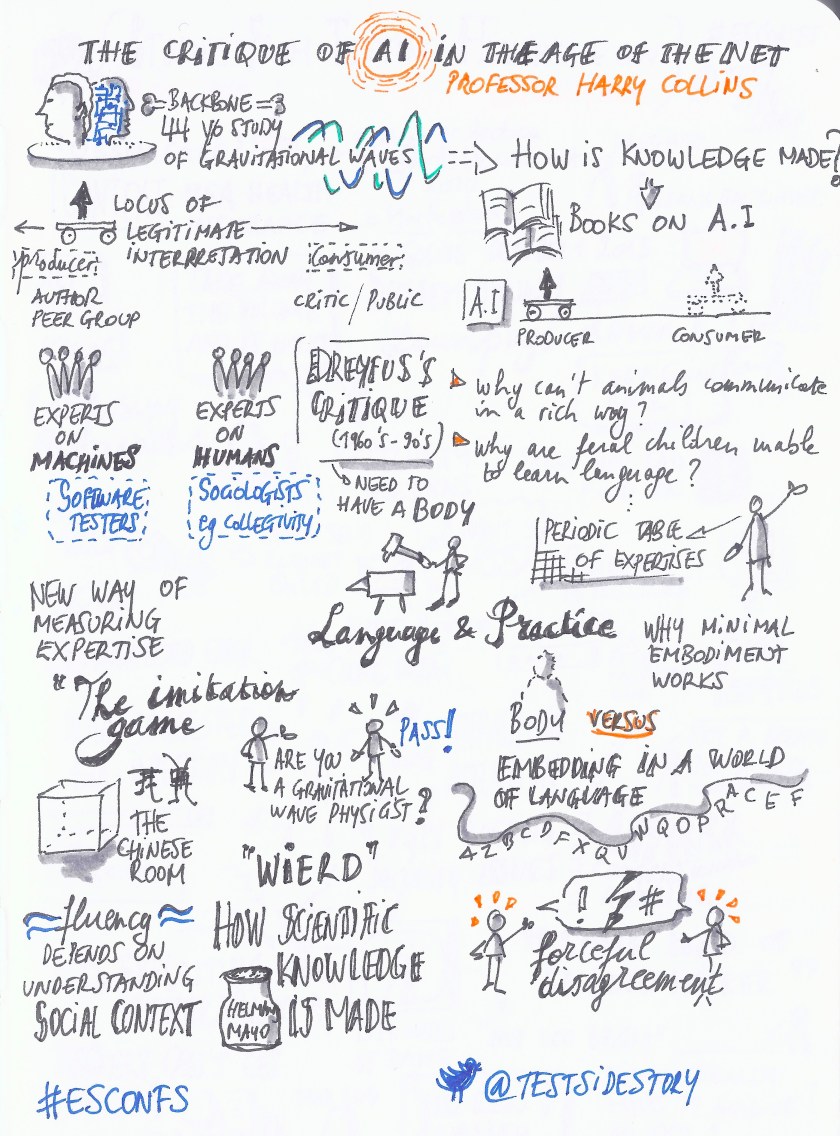 THE CRITIQUE OF AI IN THE AGE OF THE NET
PROFESSOR HARRY COLLINS
BACKBONE
44 YO STUDY
OF GRAVITATIONAL WAVES
HOW IS KNOWLEDGE MADE?
BOOKS ON A.I
LOCUS OF
LEGITIMATE
INTERPRETATION
producer
AUTHOR
PEER GROUP
Consumer
CRITIC / PUBLIC
A.I
PRODUCER
CONSUMER
EXPERTS
ON
MACHINES
SOFTWARE
TESTERS
EXPERTS
ON
HUMANS
SOCIOLOGISTS
eg COLLECTIVITY
DREYFUS'S
CRITIQUE
(1960's-90's)
NEED TO
HAVE A BODY
why can't animals communicate
in a rich way?
why are feral children unable
to learn language?
PERIODIC TABLE
OF EXPERTISES
NEW WAY OF
MEASURING
EXPERTISE
Language & Practice
WHY MINIMAL
EMBODIMENT
WORKS
"The imitation
game
ARE YOU
A GRAVITATIONAL
WAVE PHYSICIST?
PASS!
BODY VERSUS
EMBEDDING IN A WORLD
OF LANGUAGE
A Z B C D F X Q U N Q O P R A C E F
THE
CHINESE
ROOM
"WIERD"
fluency
DEPENDS ON
UNDERSTANDING
SOCIAL CONTEXT
HOW SCIENTIFIC
KNOWLEDGE
IS MADE
HELMAN
MAYO
! #
forceful
disagreement
#ESCONFS
@TESTSIDESTORY